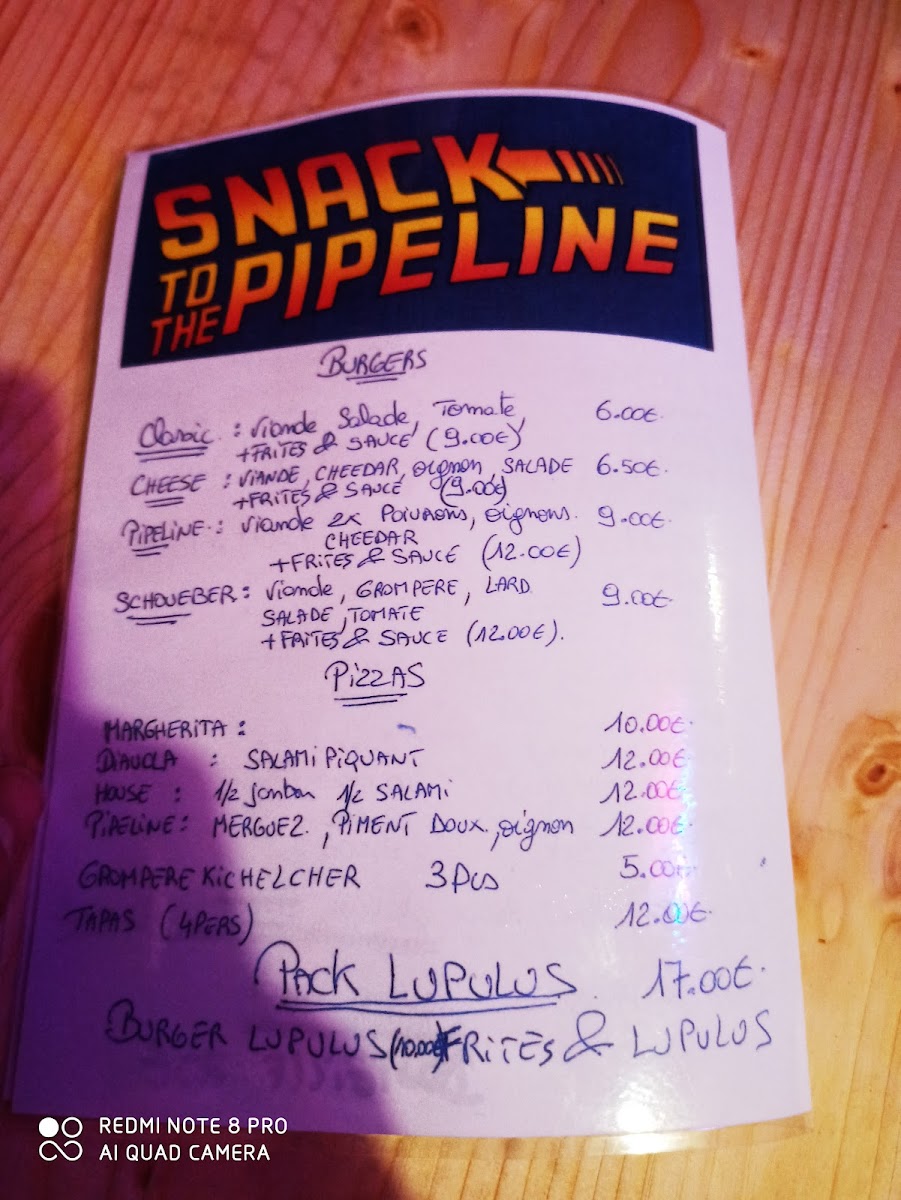 SNACK
TO THE PIPELINE
BURGERS
Classic : Viande Salade, Tomate, 6.00€.
+FRITES & SAUCE (9.00€)
CHEESE : VIANDE, CHEEDAR, oignon, SALADE 6.50€.
+FRITES & SAUCE (9.00€)
PIPELINE : Viande 2x POIVRONS, oignons. 9.00€.
CHEEDAR
+FRITES & SAUCE (12.00€)
SCHOUEBER : Viande, GROMPERE, LARD 9.00€.
SALADE, TOMATE
+FRITES & SAUCE (12.00€).
PIZZAS
MARGHERITA : 10.00€.
DIAVOLA : SALAMI PIQUANT 12.00€
HOUSE : 1/2 jambon 1/2 SALAMI 12.00€
PIPELINE : MERGUEZ, PIMENT DOUX, oignon 12.00€.
GROMPERE KICHELCHER 3 Pcs 5.00€.
TAPAS (4PERS) 12.00€.
PACK LUPULUS 17.00€.
BURGER LUPULUS (10.00€) FRITES & LUPULUS
REDMI NOTE 8 PRO
AI QUAD CAMERA